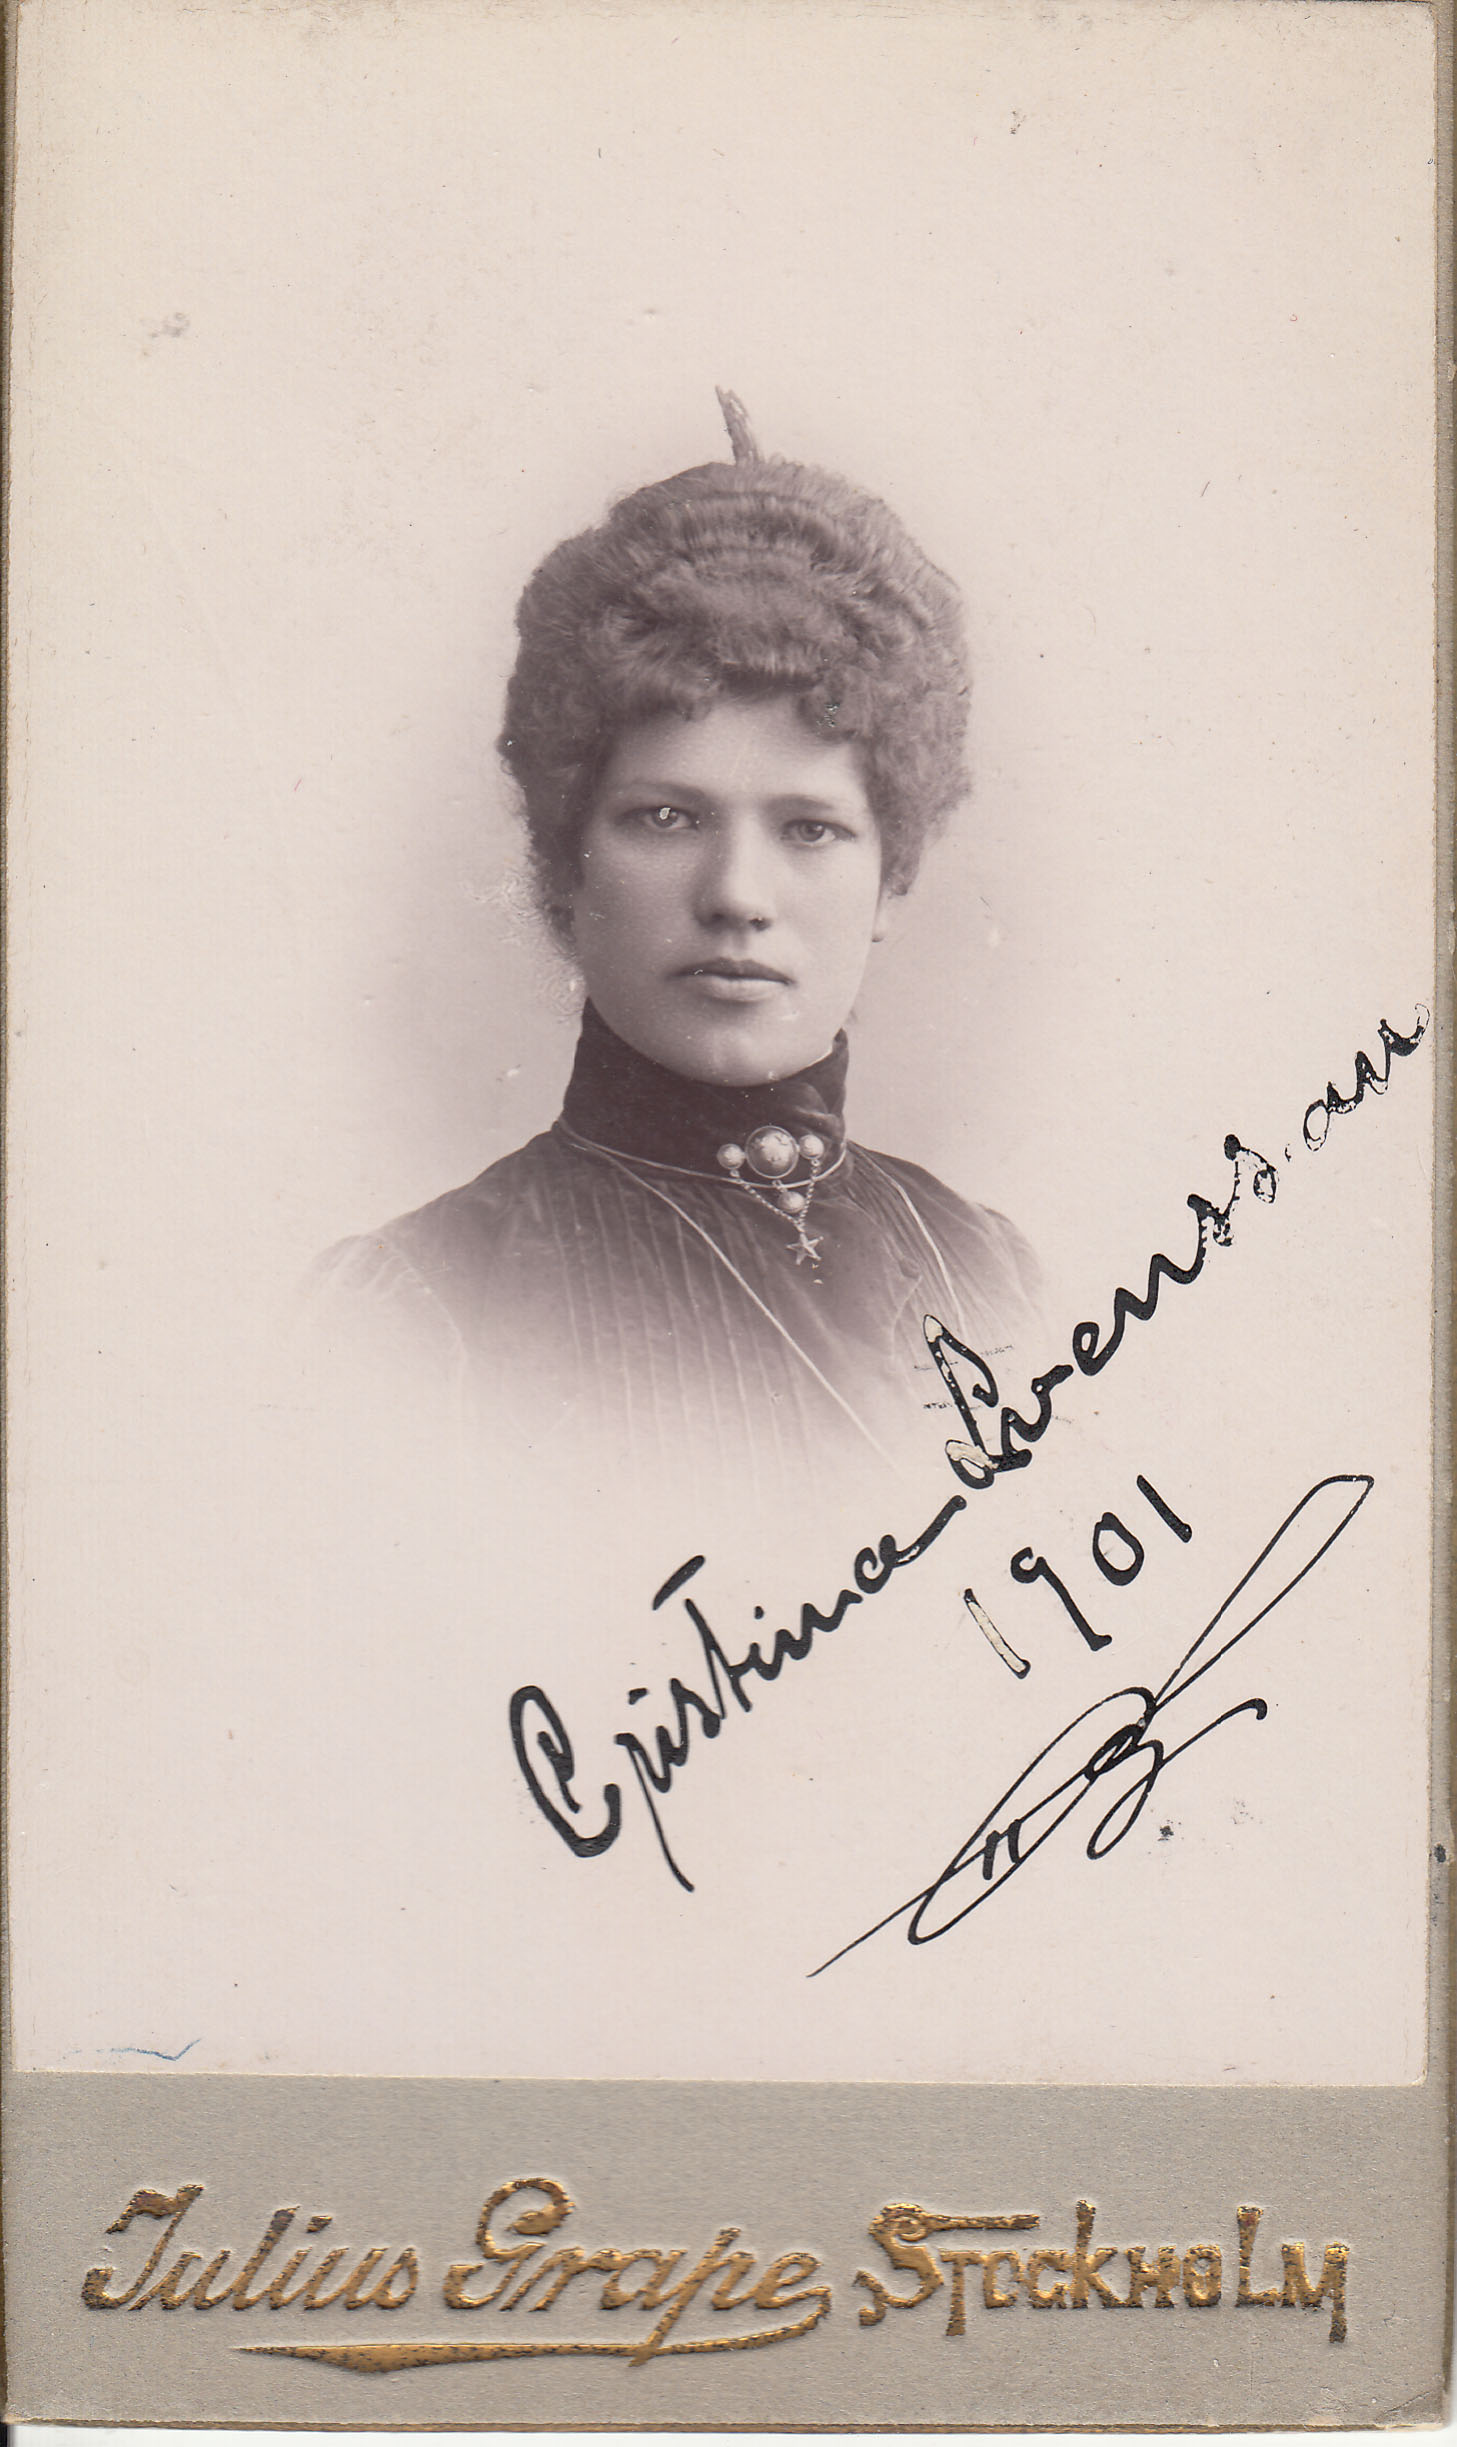 Cristina Svensson
1901
Julius Grape, Stockholm